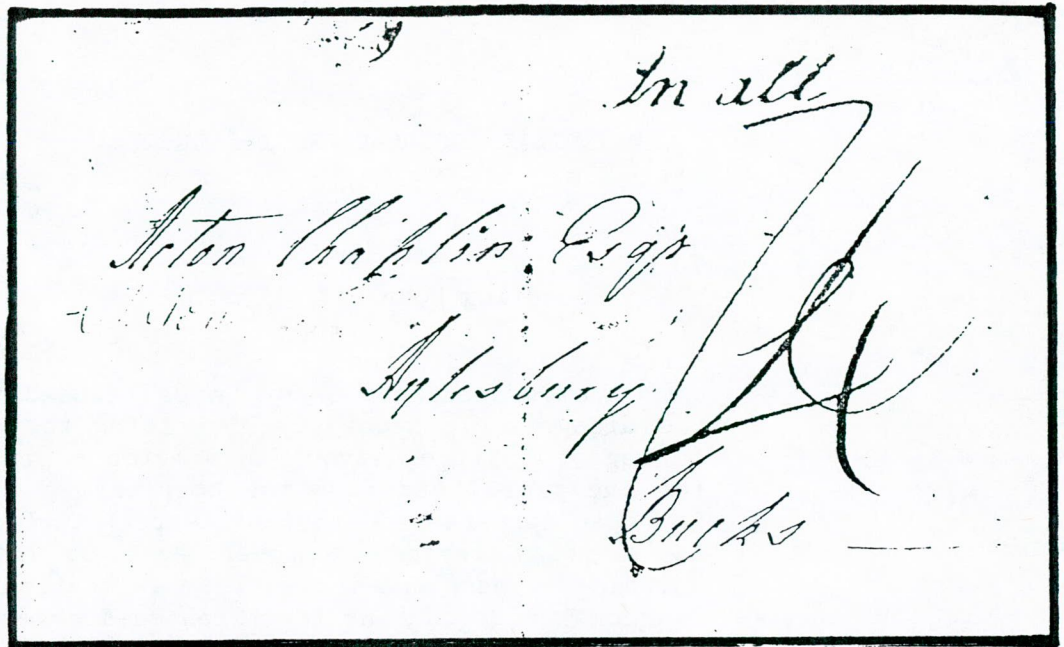 In all
Acton Chaplin Esqr
Aylesbury
Bucks